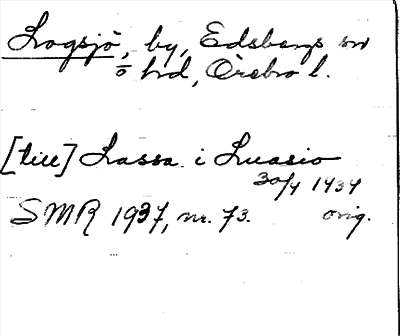 Logsjö, by, Edsbergs sn
o hd, Örebro l.
[till] Lassa i Luasio
30/4 1434
SMR 1937, nr. 73. orig.